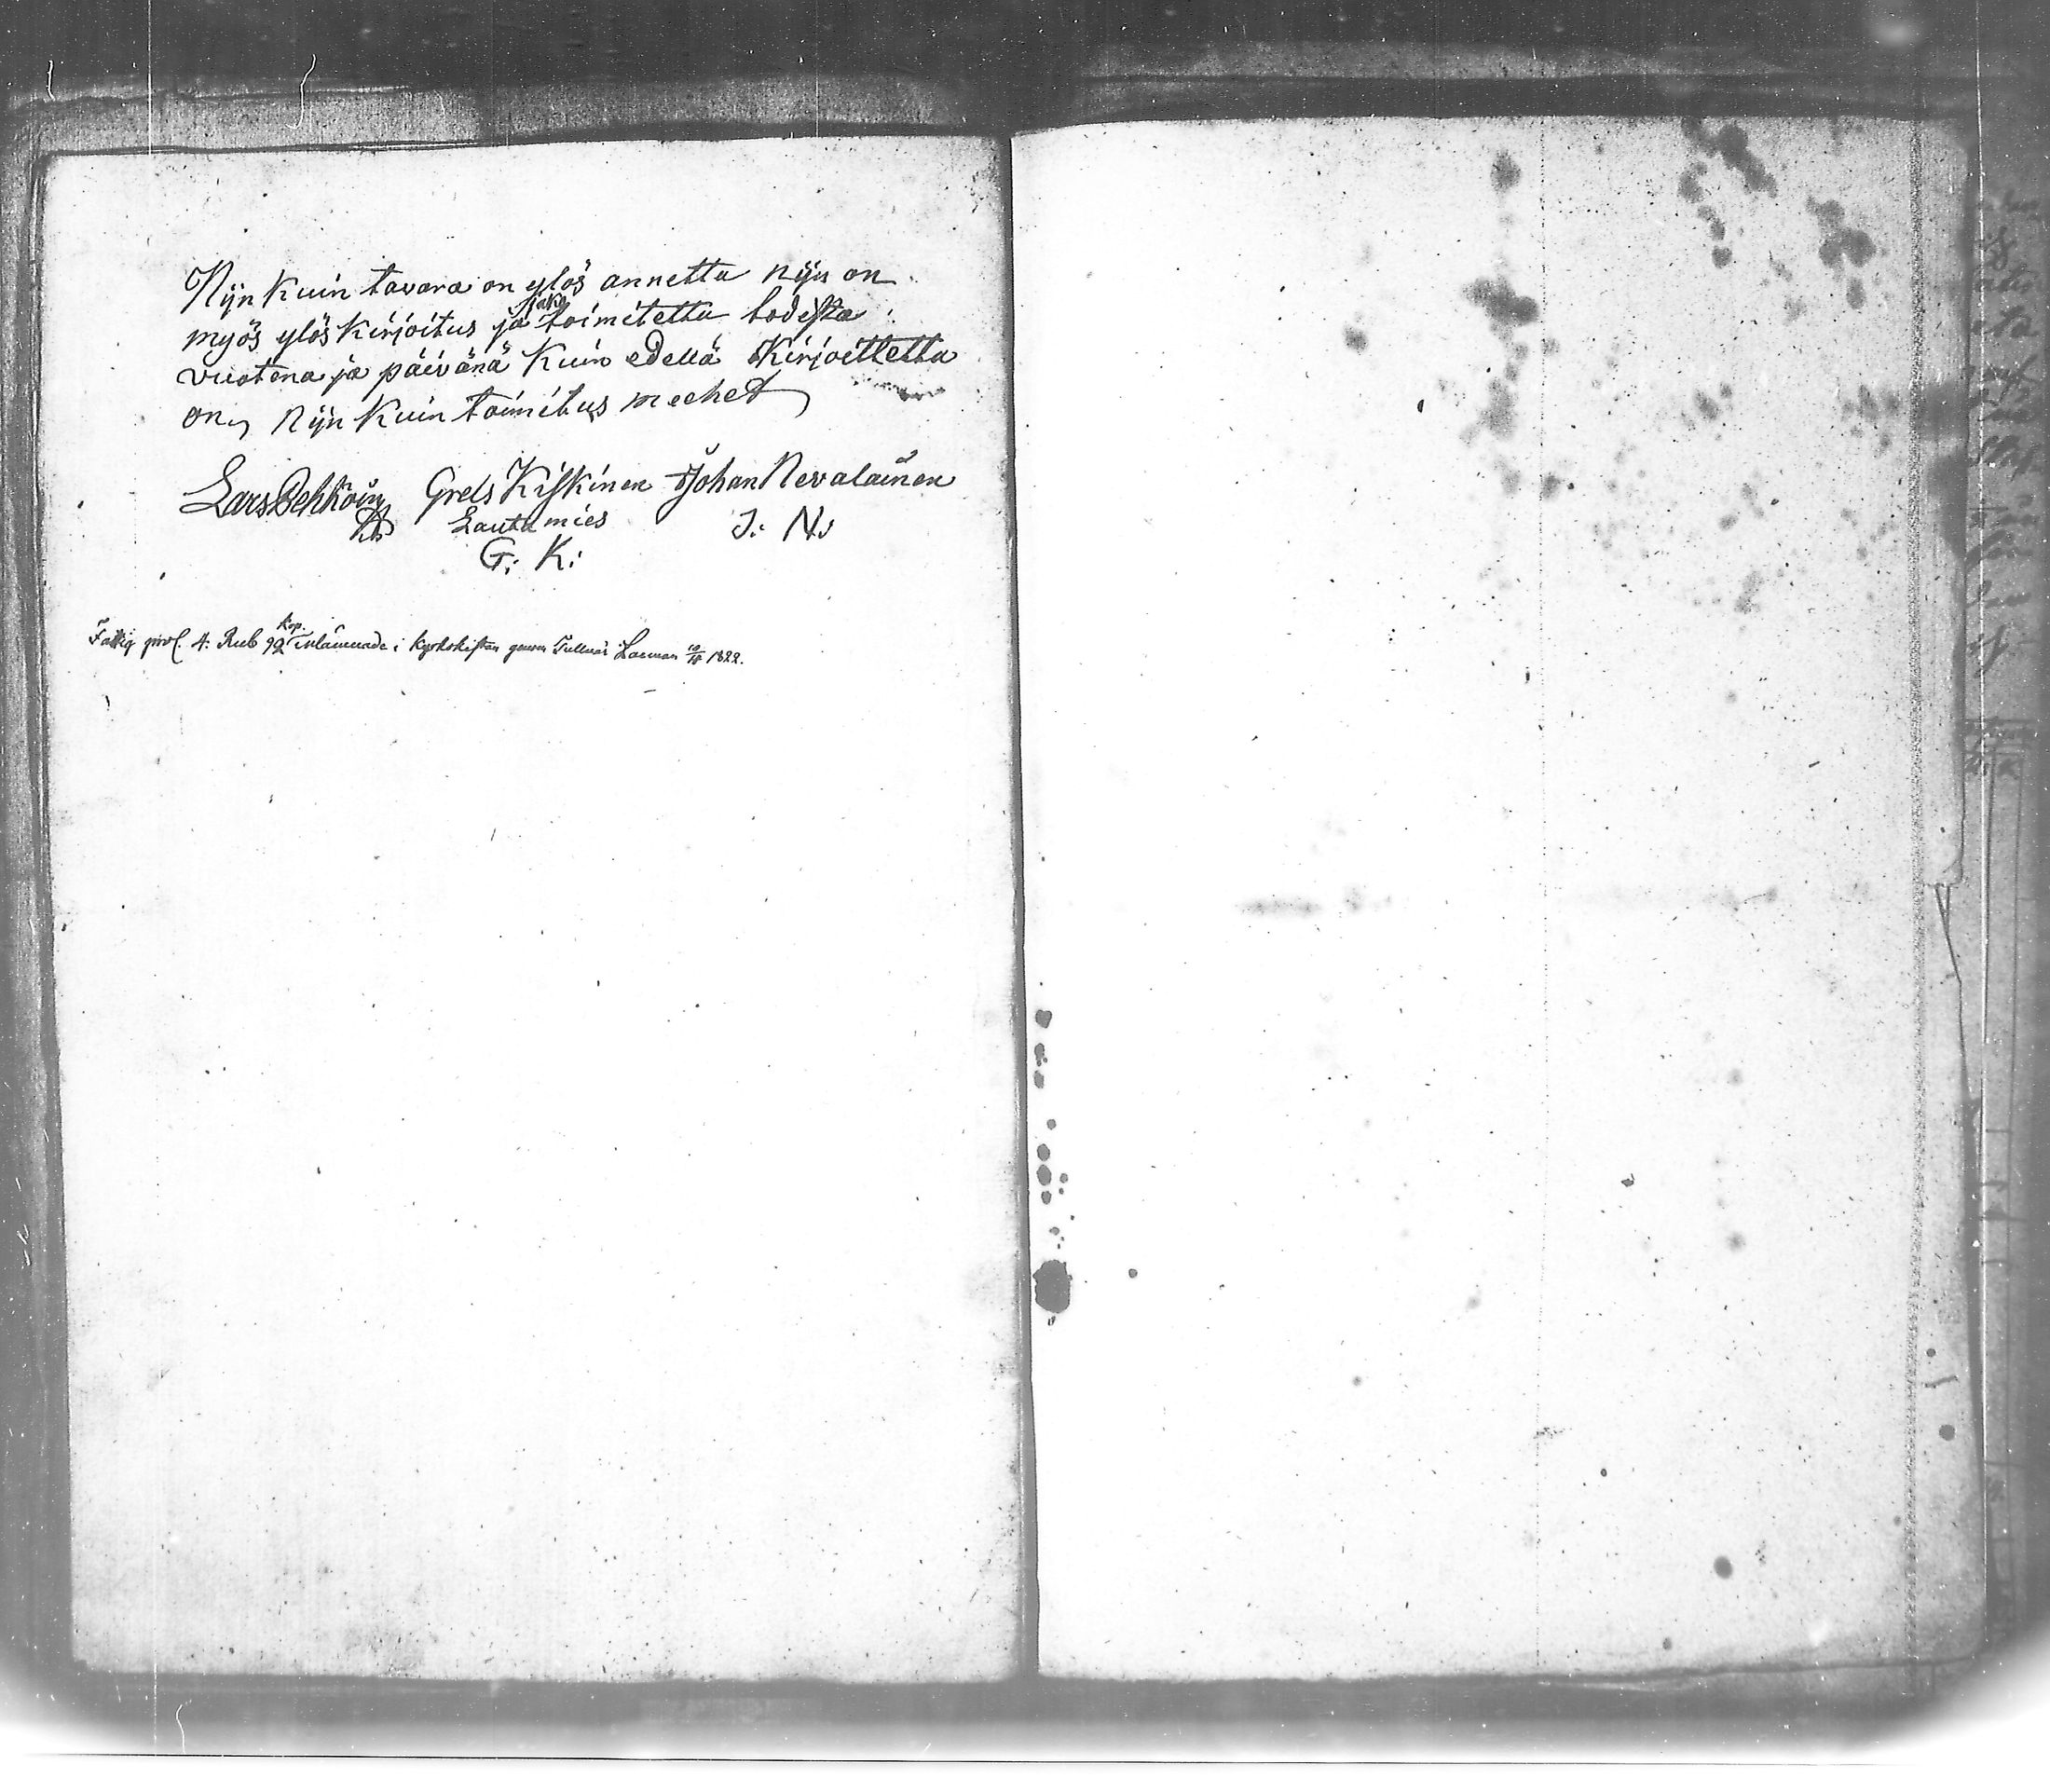 Nijn kuin tavara on ylös annettu nijn on
myös ylös kirjoitus ja jako toimitettu todesta
vuotena ja päivänä kuin edellä kirjoitettu
on, nijn kuin toimitus mechet
Lars Pehkoin Grels Kiskinen Johan Nevalainen
Lautamies J: N:
G: K:
Fattig 4: Rub 92 kop. inlämnade i kyrkokistan genom Tullnär Loeman 1822.